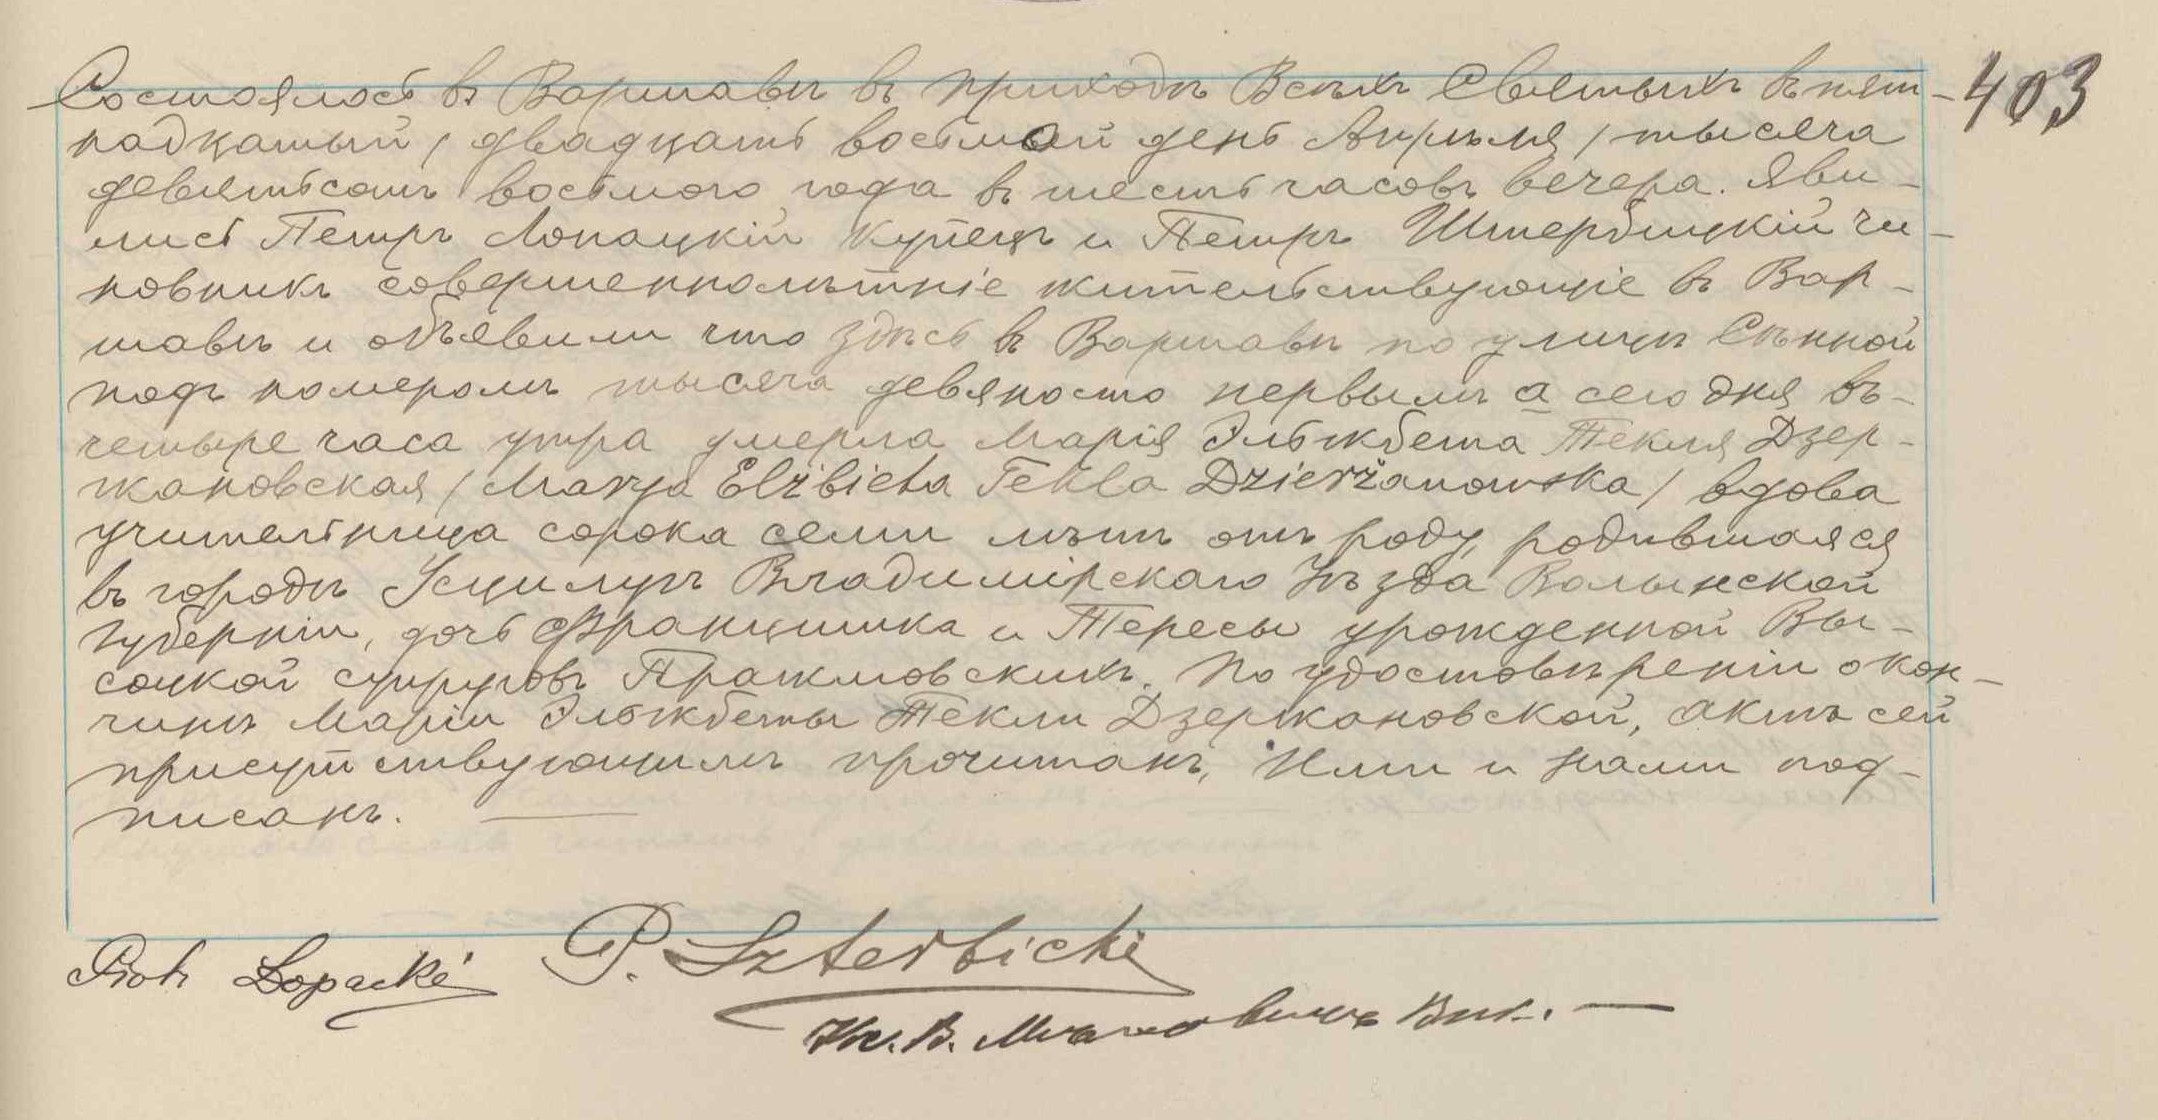 Состоялось въ Варшавѣ въ приходѣ Всѣхъ Святыхъ въ пят-
надцатый / двадцать восьмой день Апрѣля / тысяча
девятьсотъ восьмого года въ шесть часовъ вечера. Яви-
лись Петръ Лопацкій купецъ и Петръ Штербицкій чи-
новникъ совершеннолѣтніе жительствующіе въ Вар-
шавѣ и объявили что здѣсь въ Варшавѣ по улицѣ Сѣнной
подъ номеромъ тысяча девяносто первымъ а сего дня въ
четыре часа утра умерла Марія Эльжбета Текля Дзер-
жановская / Marya Elżbieta Tekla Dzierżanowska / вдова
учительница сорока семи лѣтъ отъ роду, родившаяся
въ городѣ Усцилугъ Владимірскаго Уѣзда Волынской
губерніи, дочь Францишка и Тересы урожденной Вы-
соцкой супруговъ Пражмовскихъ. По удостовѣреніи о кон-
чинѣ Маріи Эльжбеты Текли Дзержановской, актъ сей
присутствующимъ прочитанъ, Ими и Нами под-
писанъ.
403
Piotr Łopacki P. Szterbicki
Кс. В. Вик.